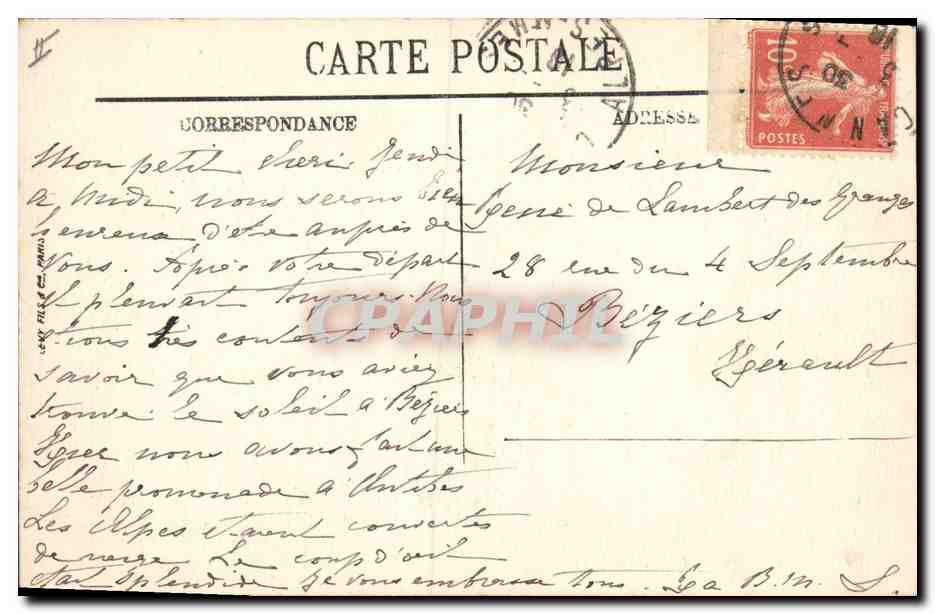 II
CARTE POSTALE
CORRESPONDANCE
ADRESSE
10
POSTES
CANNES
ALPES
30
LEVY FILS & Cie, PARIS
CPAPHIL
Mon petit cheri Jeudi
à midi, nous serons bien
heureux d'être auprès de
vous. Après votre départ
il pleuvait toujours. Nous
étions très contents de
savoir que vous aviez
trouvé le soleil à Béziers
Hier nous avons fait une
belle promenade à Antibes
Les Alpes étaient couvertes
de neige Le coup d'œil
était splendide Je vous embrasse tous. Ta B. M. S.
Monsieur
René de Lambert des Granges
28 rue du 4 Septembre
Béziers
Hérault